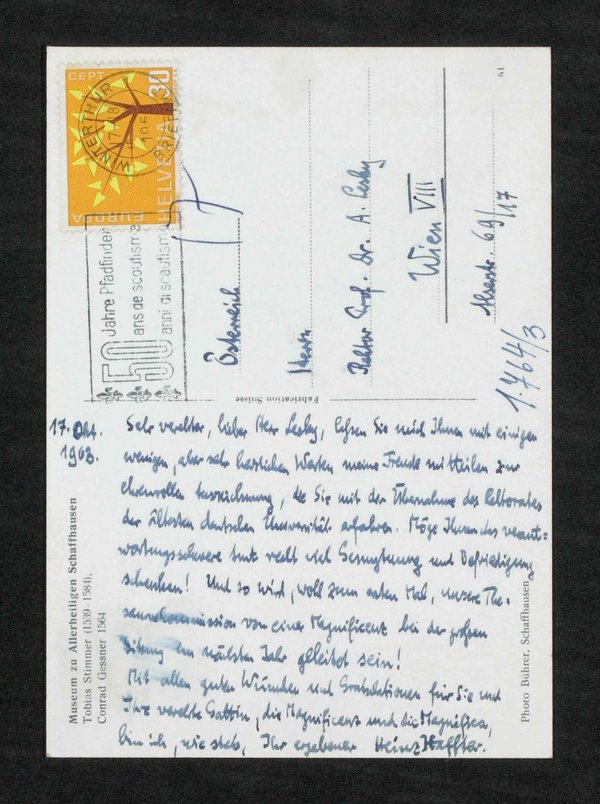 CEPT
30
HELVETIA
EUROPA
WINTERTHUR
BRIEF
50 Jahre Pfadfinder
ans de scoutisme
anni di scautismo
61
Österreich
Herrn
Rektor Prof. Dr. A. Lesky
Wien VIII
Alserstr. 69/17
1.764/3
Fabrication Suisse
17. Okt.
1963.
Sehr verehrter, lieber Herr Lesky, lassen Sie mich Ihnen mit einigen
wenigen, aber sehr herzlichen Worten meine Freude mitteilen zur
ehrenvollen Auszeichnung, die Sie mit der Übernahme des Rektorates
der ältesten deutschen Universität erfahren. Möge Ihnen das verant=
wortungsschwere Amt recht viel Genugtuung und Befriedigung
schenken! Und so wird, wohl zum ersten Mal, unsere The-
sauruskommission von einer Magnifizenz bei der großen
Sitzung im nächsten Jahr geleitet sein!
Mit allen guten Wünschen und Gratulationen für Sie und
Ihre verehrte Gattin, die Magnifizenz und die Magnifica,
bin ich, wie stets, Ihr ergebener Heinz Haffter.
Museum zu Allerheiligen Schaffhausen
Tobias Stimmer (1539-1584),
Conrad Gessner 1564
Photo Bührer, Schaffhausen